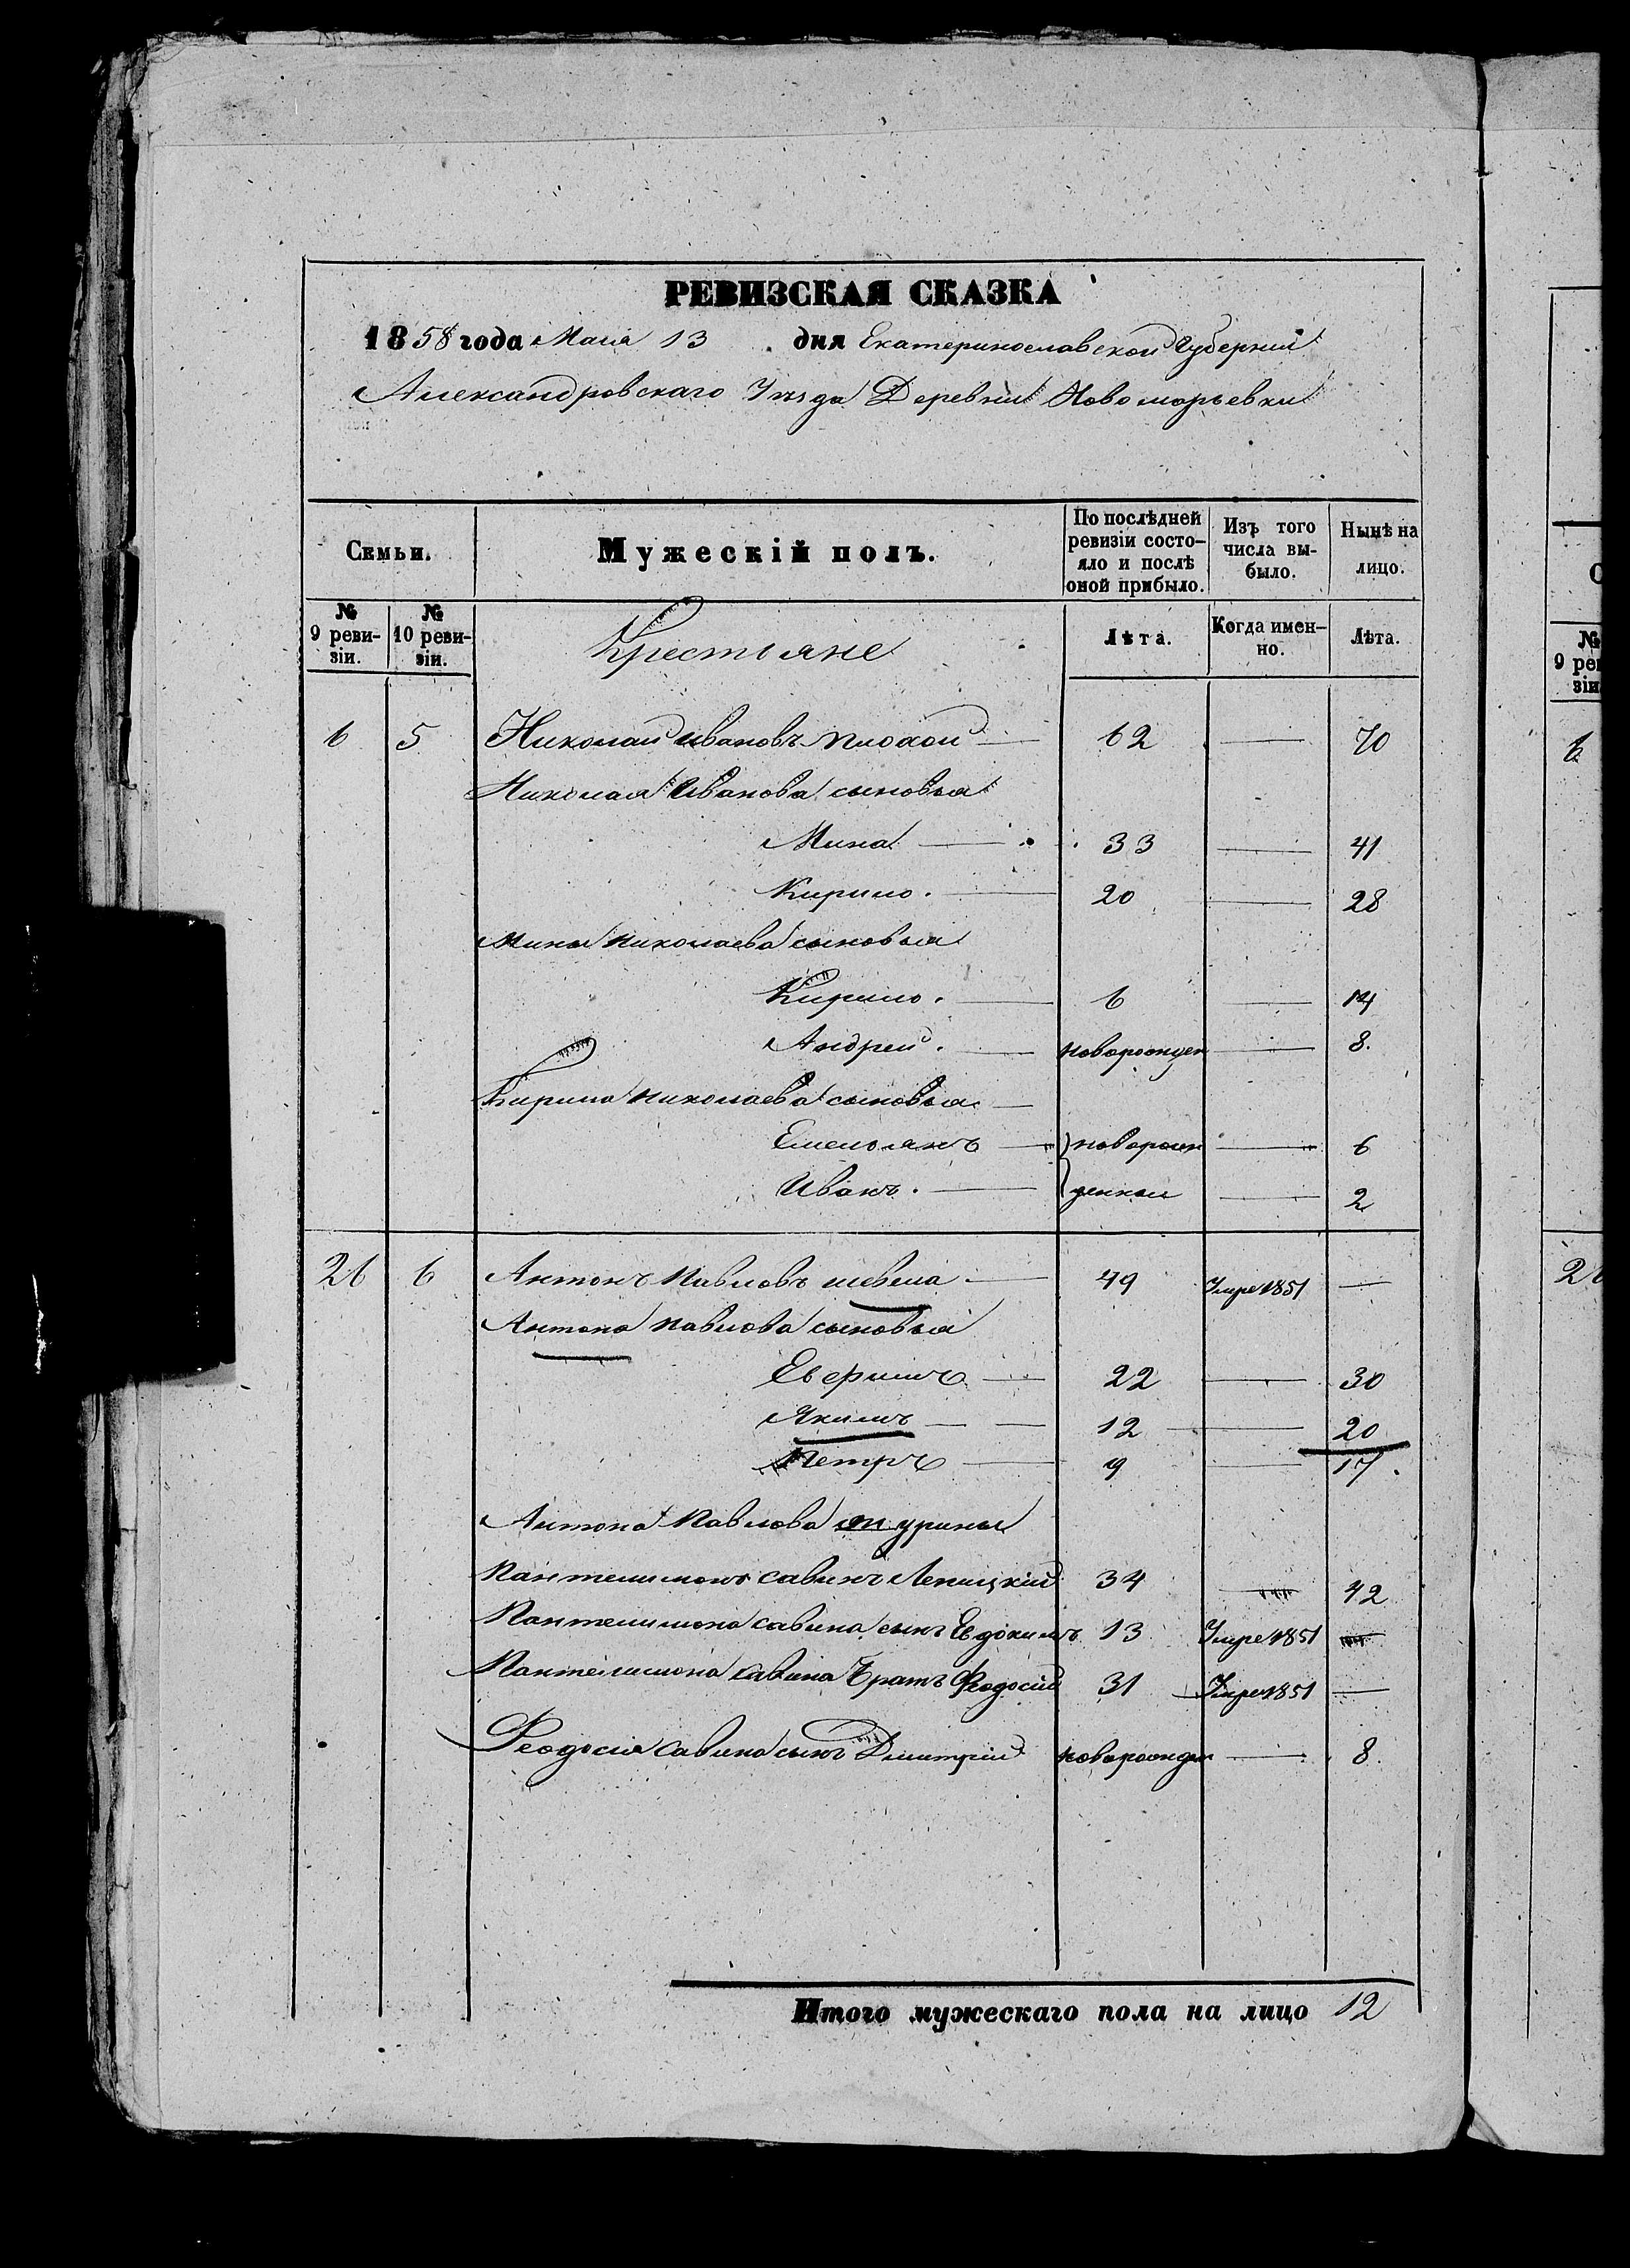 РЕВИЗСКАЯ СКАЗКА
1858 года Маія 13 дня Екатеринославской Губерніи
Александровскаго Уѣзда Деревни Новомарьевки
Семьи.
Мужескій полъ.
По послѣдней ревизіи состо-яло и послѣ оной прибыло.
Изъ того числа вы-было.
Нынѣ на лицо.
№ 9 реви-зіи.
№ 10 реви-зіи.
Крестьяне
Лѣта.
Когда имен-но.
Лѣта.
6 5 Николай Ивановъ Плохой — 62 — 70
Николая Иванова сыновья
Мина — 33 — 41
Кирило. — 20 — 28
Мины Николаева сыновья
Кирило. — 6 — 14
Андрей. — новорожден — 8.
Кирила Николаева сыновья —
Емельянъ — новорож — 6
Иванъ. — денныи — 2
26 6 Антонъ Павловъ — 49 Умре 1851 —
Антона Павлова сыновья
22 — 30
Якимъ — — 12 — 20
Петръ — 9 — 17.
Антона Павлова шурины
Пантелимонъ Савинъ 34 — 42
Пантелимона Савина сынъ Евдокимъ 13 Умре 1851 —
Пантелимона Савина братъ Феодосій 31 Умре 1851 —
Феодосія Савина сынъ Дмитрій новорожден — 8.
Итого мужескаго пола на лицо 12
№
9 рев
зіи
6
26